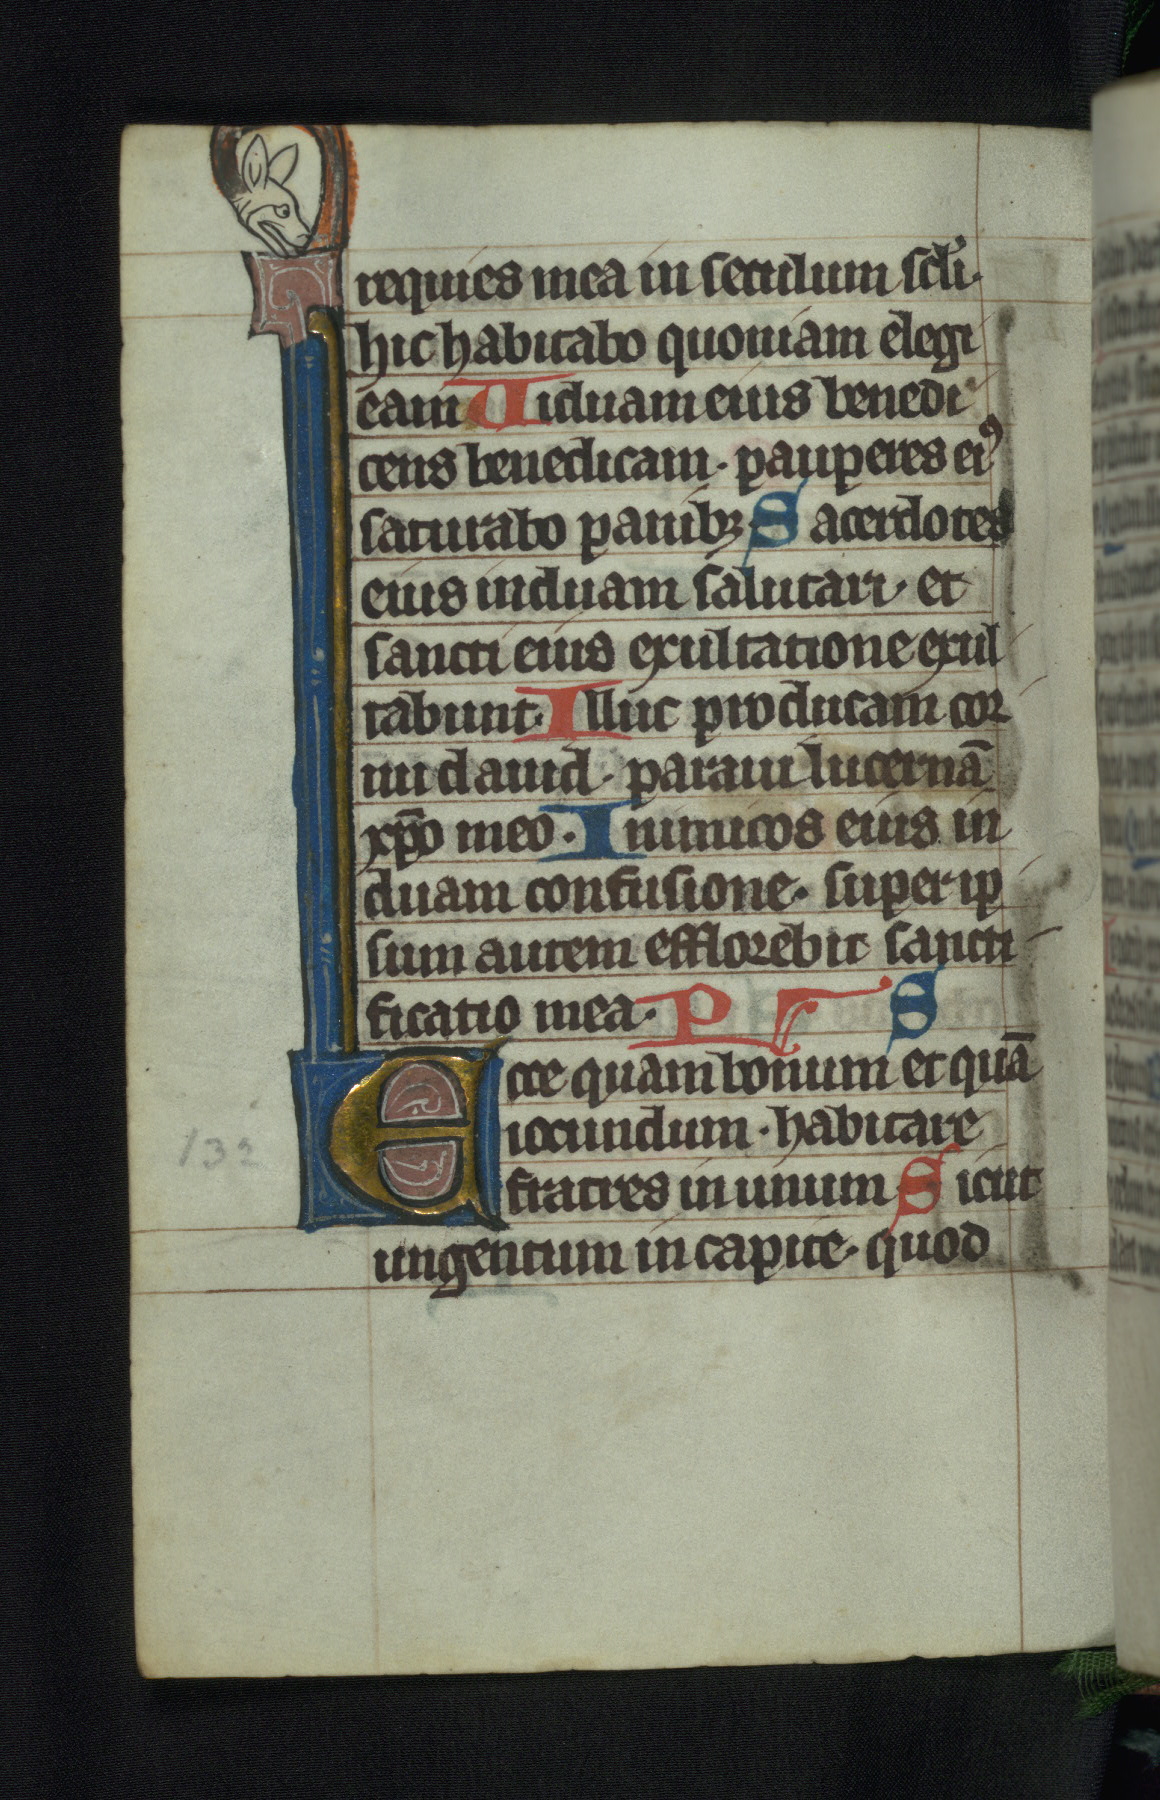 requies mea in seculum scli.
hic habitabo quoniam elegi
eam Uiduam eius benedi
cens benedicam. pauperes ei⁹
saturabo panibꝫ Sacerdotes
eius induam salutari. et
sancti eius exultatione exul
tabunt. Illuc producam cor
nu dauid. paraui lucernā
xp̄o meo. Inimicos eius in
duam confusione. super ip
sum autem efflorebit sancti
ficatio mea. Ps
Ecce quam bonum et quā
iocundum. habitare
fratres in unum Sicut
132
ungentum in capite. quod